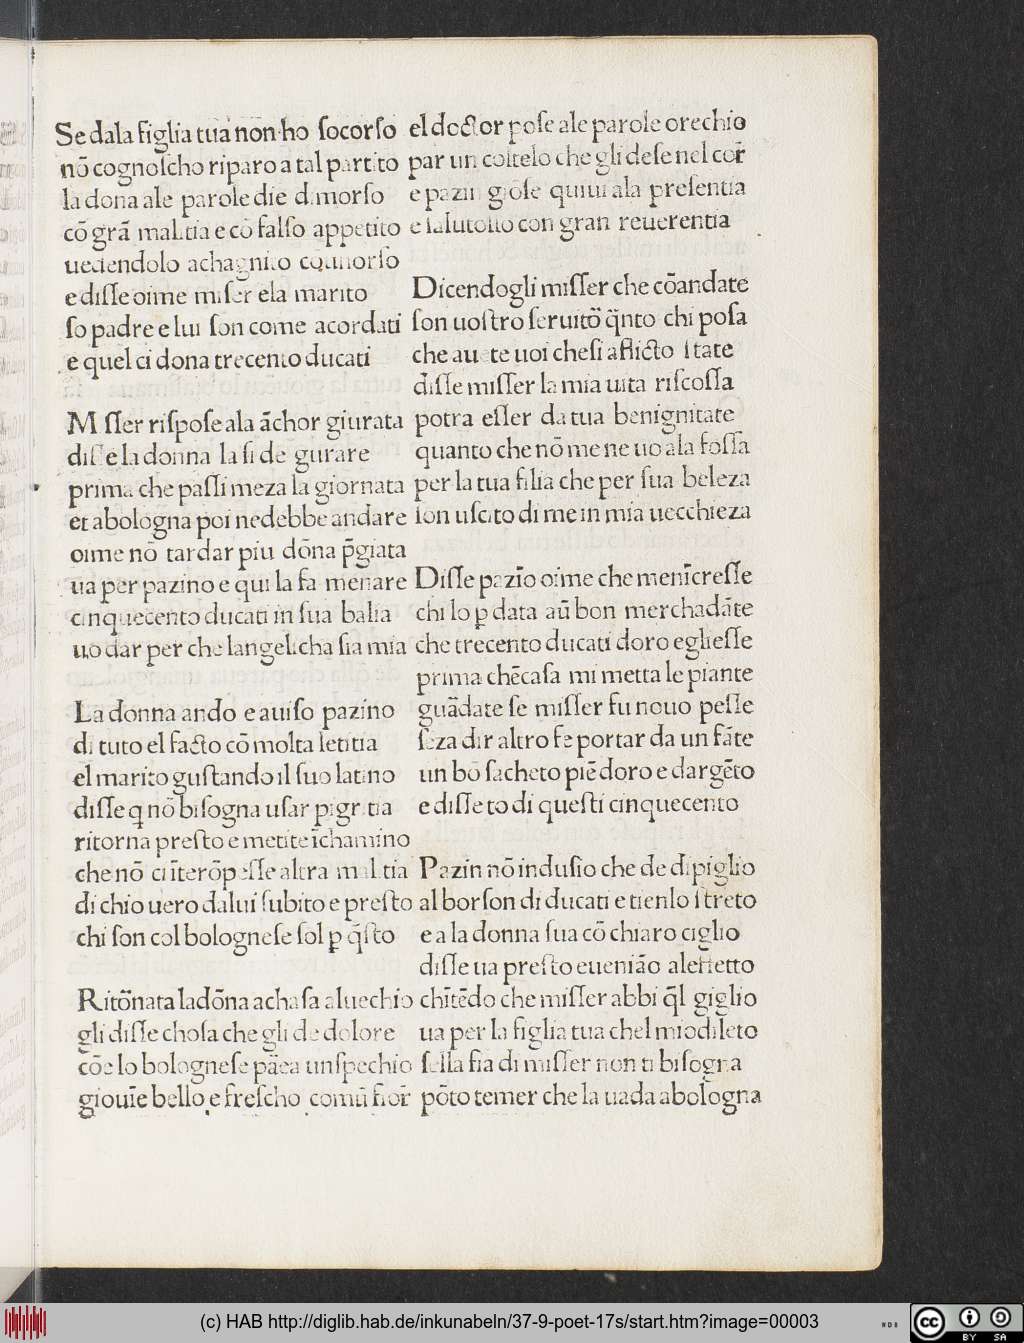 Se dala figlia tua non ho ſocorſo
nō cognoſcho riparo a tal partito
la dona ale parole die di morſo
cō grā malitia e cō falſo appetito
uedendolo
e diſſe oime miſer ela marito
ſo padre e lui ſon come acordati
e quel ci dona trecento ducati
M ſſer riſpoſe ala āchor giurata
diſſe la donna la ſi de gurare
prima che paſſi meza la giornata
et abologna poi nedebbe andare
oime nō tardar piu dōna p̄giata
ua per pazino e qui la fa menare
cinquecento ducati in ſua balia
uo dar per che langelicha ſia mia
La donna ando e auiſo pazino
di tuto el facto cō molta letitia
el marito guſtando il ſuo latino
diſſe q nō biſogna uſar pigritia
ritorna preſto e metite īchamino
che nō ci īterōpeſſe altra malitia
di chio uero dalui ſubito e preſto
chi ſon col bologneſe ſol ꝑ q̄ſto
Ritōnata la dōna achaſa al uechio
gli diſſe choſa che gli de dolore
cōe lo bologneſe pāea un ſpechio
giouīe bello e freſcho comū fior̄
el doctor poſe ale parole orechio
par un coltelo che gli deſe nel cor̄
e pazin gioſe quiui ala preſentia
e ſalutollo con gran reuerentia
Dicendogli miſſer che cōandate
ſon uoſtro ſeruitō q̄nto chi poſa
che auete uoi cheſi aflicto ſtate
diſſe miſſer la mia uita riſcoſſa
potra eſſer da tua benignitate
quanto che nō me ne uo ala foſſa
per la tua filia che per ſua beleza
ſon uſcito di me in mia uecchieza
Diſſe pazīo oime che menīcreſſe
chi lo ꝑ data aū bon merchadāte
che trecento ducati doro eglieſſe
prima chēcaſa mi metta le piante
guādate ſe miſſer fu nouo peſſe
ſēza dir altro fe portar da un fāte
un bō ſacheto piē doro e dargēto
e diſſe to di queſti cinquecento
Pazin nō induſio che de dipiglio
al borſon di ducati e tienlo ſtreto
e a la donna ſua cō chiaro ciglio
diſſe ua preſto euenião aleffetto
chītēdo che miſſer abbi q̄l giglio
ua per la figlia tua chel mio dileto
ſella fia di miſſer non ti biſogna
pōto temer che la uada abologna
(c) HAB http://diglib.hab.de/inkunabeln/37-9-poet-17s/start.htm?image=00003
cc BY SA